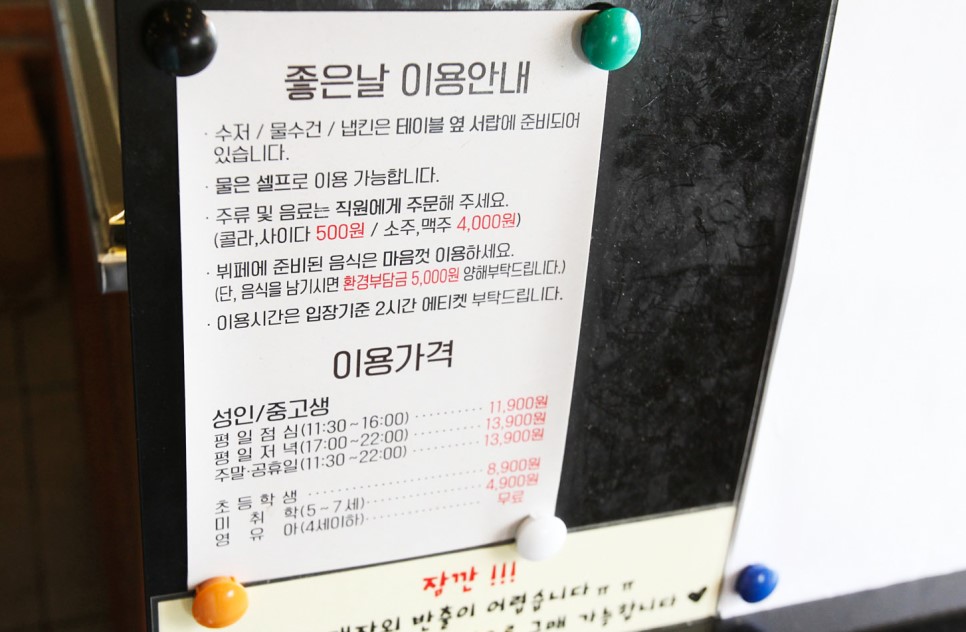 좋은날 이용안내
· 수저 / 물수건 / 냅킨은 테이블 옆 서랍에 준비되어
있습니다.
· 물은 셀프로 이용 가능합니다.
· 주류 및 음료는 직원에게 주문해 주세요.
(콜라,사이다 500원 / 소주,맥주 4,000원)
· 뷔페에 준비된 음식은 마음껏 이용하세요.
(단, 음식을 남기시면 환경부담금 5,000원 양해부탁드립니다.)
· 이용시간은 입장기준 2시간 에티켓 부탁드립니다.
이용가격
성인/중고생
평 일 점 심(11:30~16:00) ············ 11,900원
평 일 저 녁(17:00~22:00) ············ 13,900원
주말·공휴일(11:30~22:00) ············ 13,900원
초 등 학 생 ························ 8,900원
미 취 학(5~7세) ·················· 4,900원
영 유 아(4세이하) ·················· 무료
잠깐 !!!
반출이 어렵습니다 ㅠㅠ
구매 가능합니다 ♥